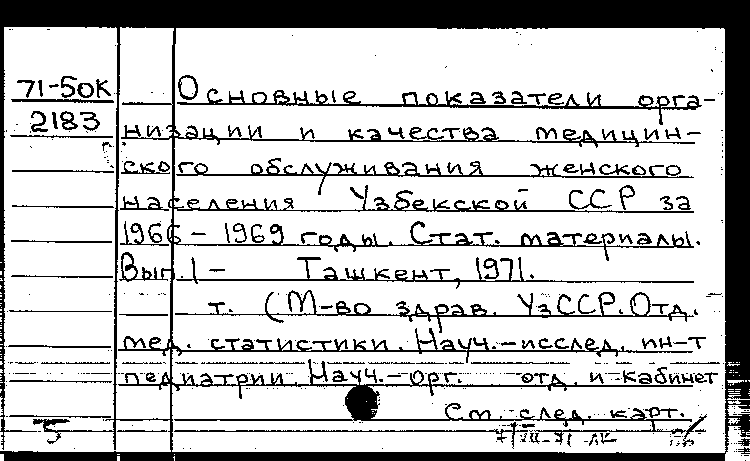 71-50К
2183
Основные показатели орга-
низации и качества медицин-
ского обслуживания женского
населения Узбекской ССР за
1966 - 1969 годы. Стат. материалы.
Вып. 1 - Ташкент, 1971.
т. (М-во здрав. УзССР. Отд.
мед. статистики. Науч.-исслед. ин-т
педиатрии. Науч.-орг. отд. и кабинет
См. след. карт.
5